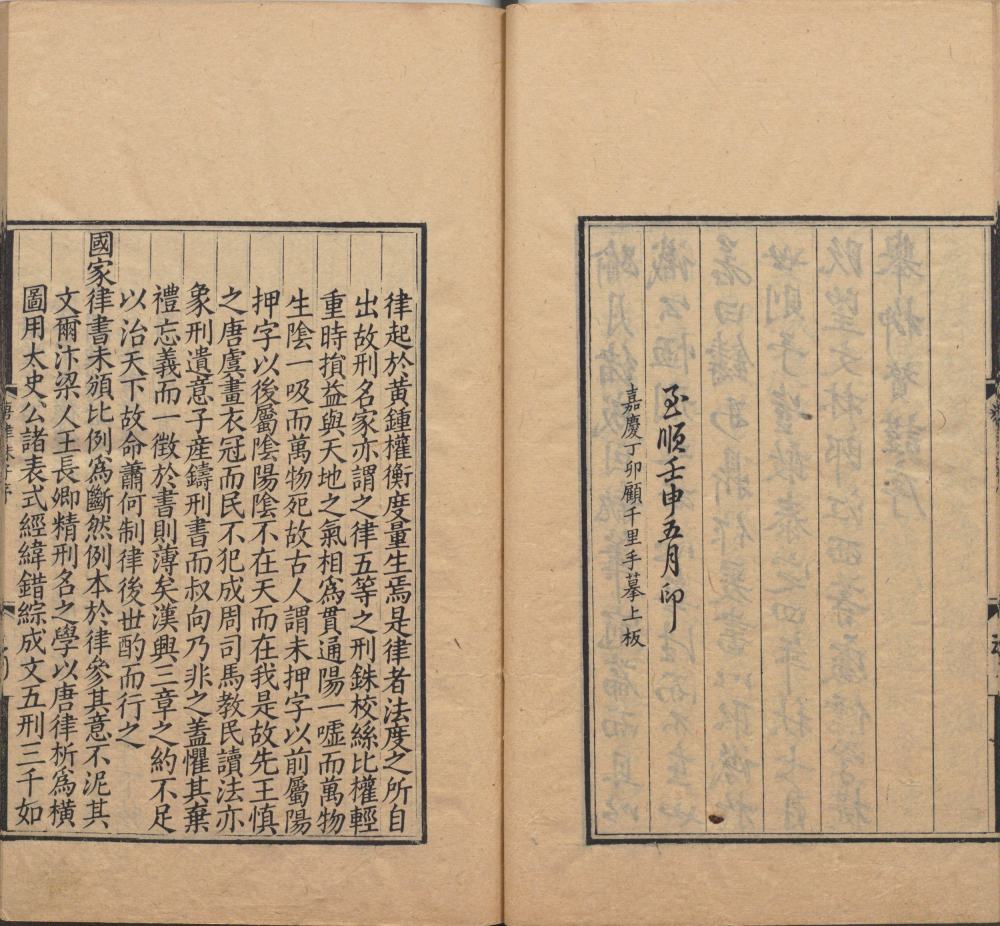 至順壬申五月印
嘉慶丁卯顧千里手摹上板
律起於黃鍾權衡度量生焉是律者法度之所自
出故刑名家亦謂之律五等之刑銖校絲比權輕
重時損益與天地之氣相爲貫通陽一噓而萬物
生陰一吸而萬物死故古人謂未押字以前屬陽
押字以後屬陰陽陰不在天而在我是故先王慎
之唐虞畫衣冠而民不犯成周司馬教民讀法亦
象刑遺意子產鑄刑書而叔向乃非之蓋懼其棄
禮忘義而一徵於書則薄矣漢興三章之約不足
以治天下故命蕭何制律後世酌而行之
國家律書未頒比例爲斷然例本於律參其意不泥其
文爾汴梁人王長卿精刑名之學以唐律析爲橫
圖用太史公諸表式經緯錯綜成文五刑三千如